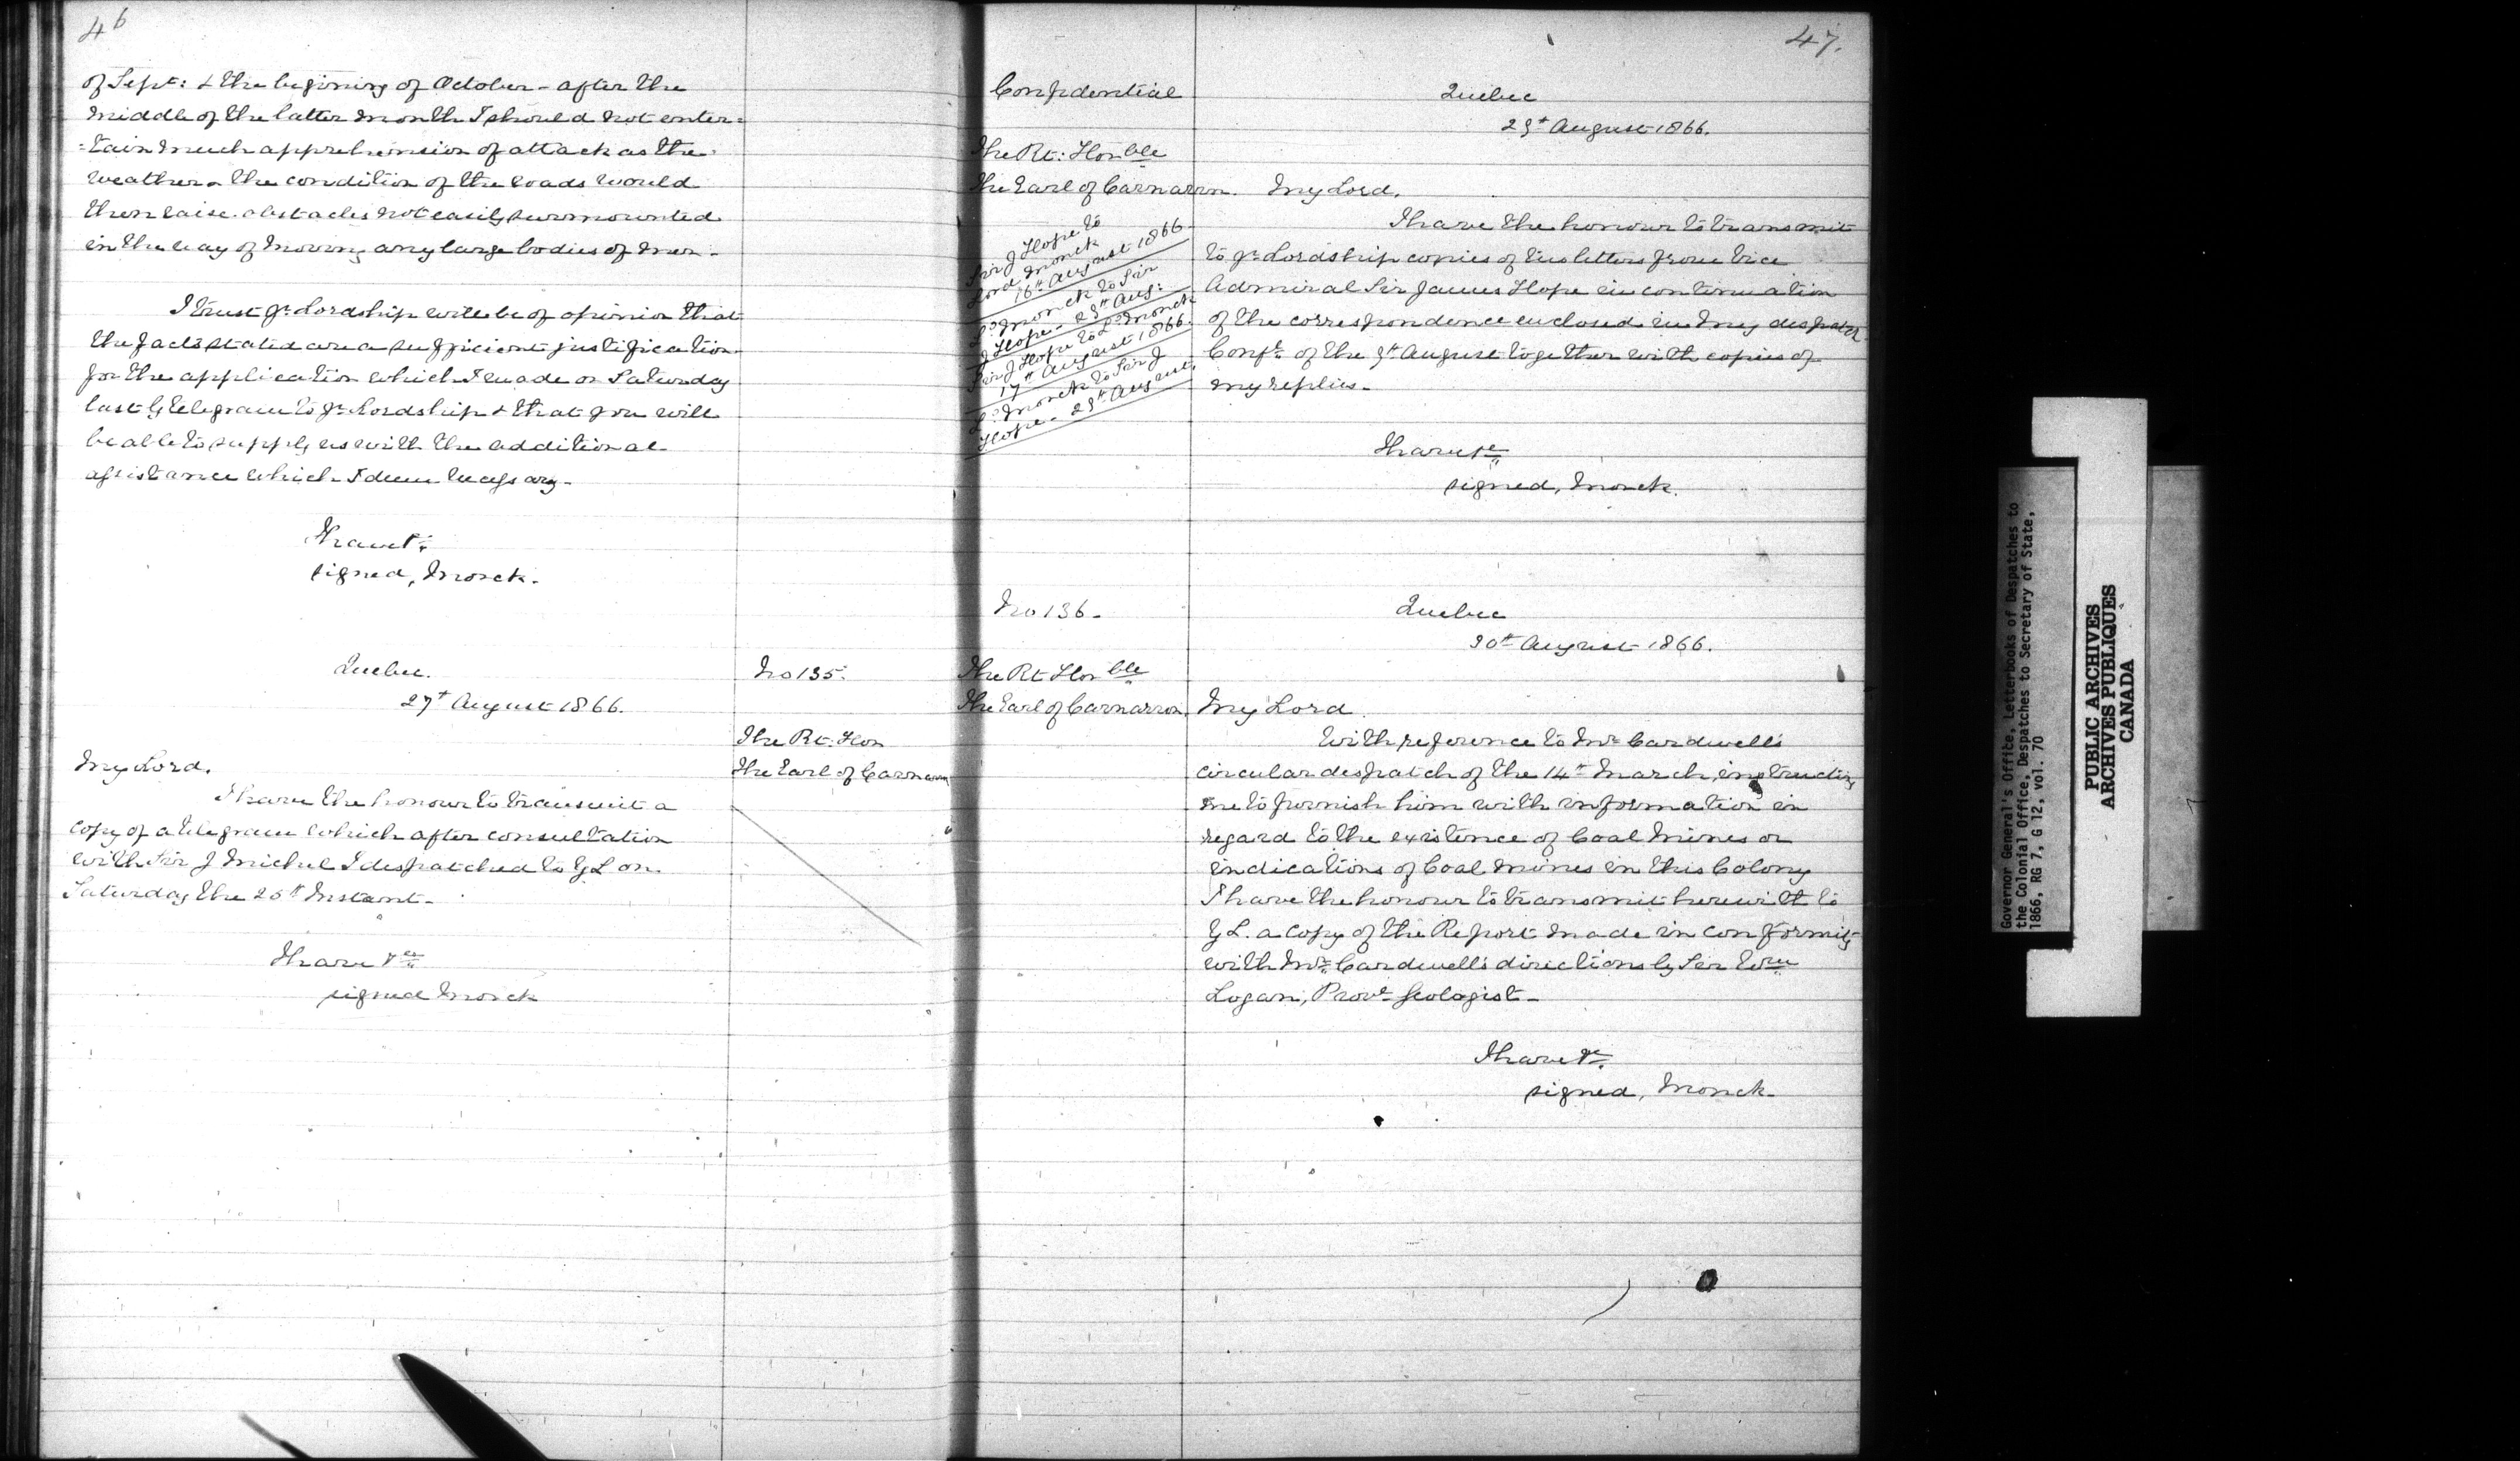 46
of Sept: & the begining of October - after the
middle of the latter month I should not enter=
=tain much apprehension of attack as the
weather & the condition of the roads would
then raise obstacles not easily surmounted
in the way of moving any large bodies of men -
I trust yr Lordship will be of opinion that
the facts stated are a sufficient justification
for the application which I made on Saturday
last by telegram to yr Lordship & that you will
be able to supply us with the additional
assistance which I deem necessary -
I have &c
signed, Monck.
Quebec.
27th August 1866.
No 135.
The Rt: Hon
The Earl of Carnarvon
My Lord.
I have the honour to transmit a
copy of a telegram which after consultation
with Sir J Michel I despatched to Y L on
Saturday the 25th Instant -
I have &c
signed Monck
47.
Confidential
Quebec
29th August 1866.
The Rt: Honble
The Earl of Carnarvon.
My Lord.
Sir J Hope to
Lord Monck
16th August 1866
Ld Monck to Sir
J Hope - 29th Aug:
Sir J Hope to Ld Monck
17th August 1866.
Ld Monck to Sir J
Hope - 29th August.
I have the honour to transmit
to yr Lordship copies of two letters from Vice
Admiral Sir James Hope in continuation
of the correspondence enclosed in my despatch
Confl of the 9th August together with copies of
my replies -
I have &c
signed, Monck.
No 136 -
Quebec
30th August 1866.
The Rt Honble
The Earl of Carnarvon.
My Lord
With reference to Mr Cardwell's
circular despatch of the 14th March, instructing
me to furnish him with information in
regard to the existence of Coal Mines or
indications of Coal Mines in this Colony
I have the honour to transmit herewith to
Y L. a copy of the Report made in conformity
with Mr Cardwell's directions by Sir Wm
Logan, Provl Geologist -
I have &c.
signed, Monck.
Governor General's Office, Letterbooks of Despatches to
the Colonial Office, Despatches to Secretary of State,
1866, RG 7, G 12, vol. 70
PUBLIC ARCHIVES
ARCHIVES PUBLIQUES
CANADA